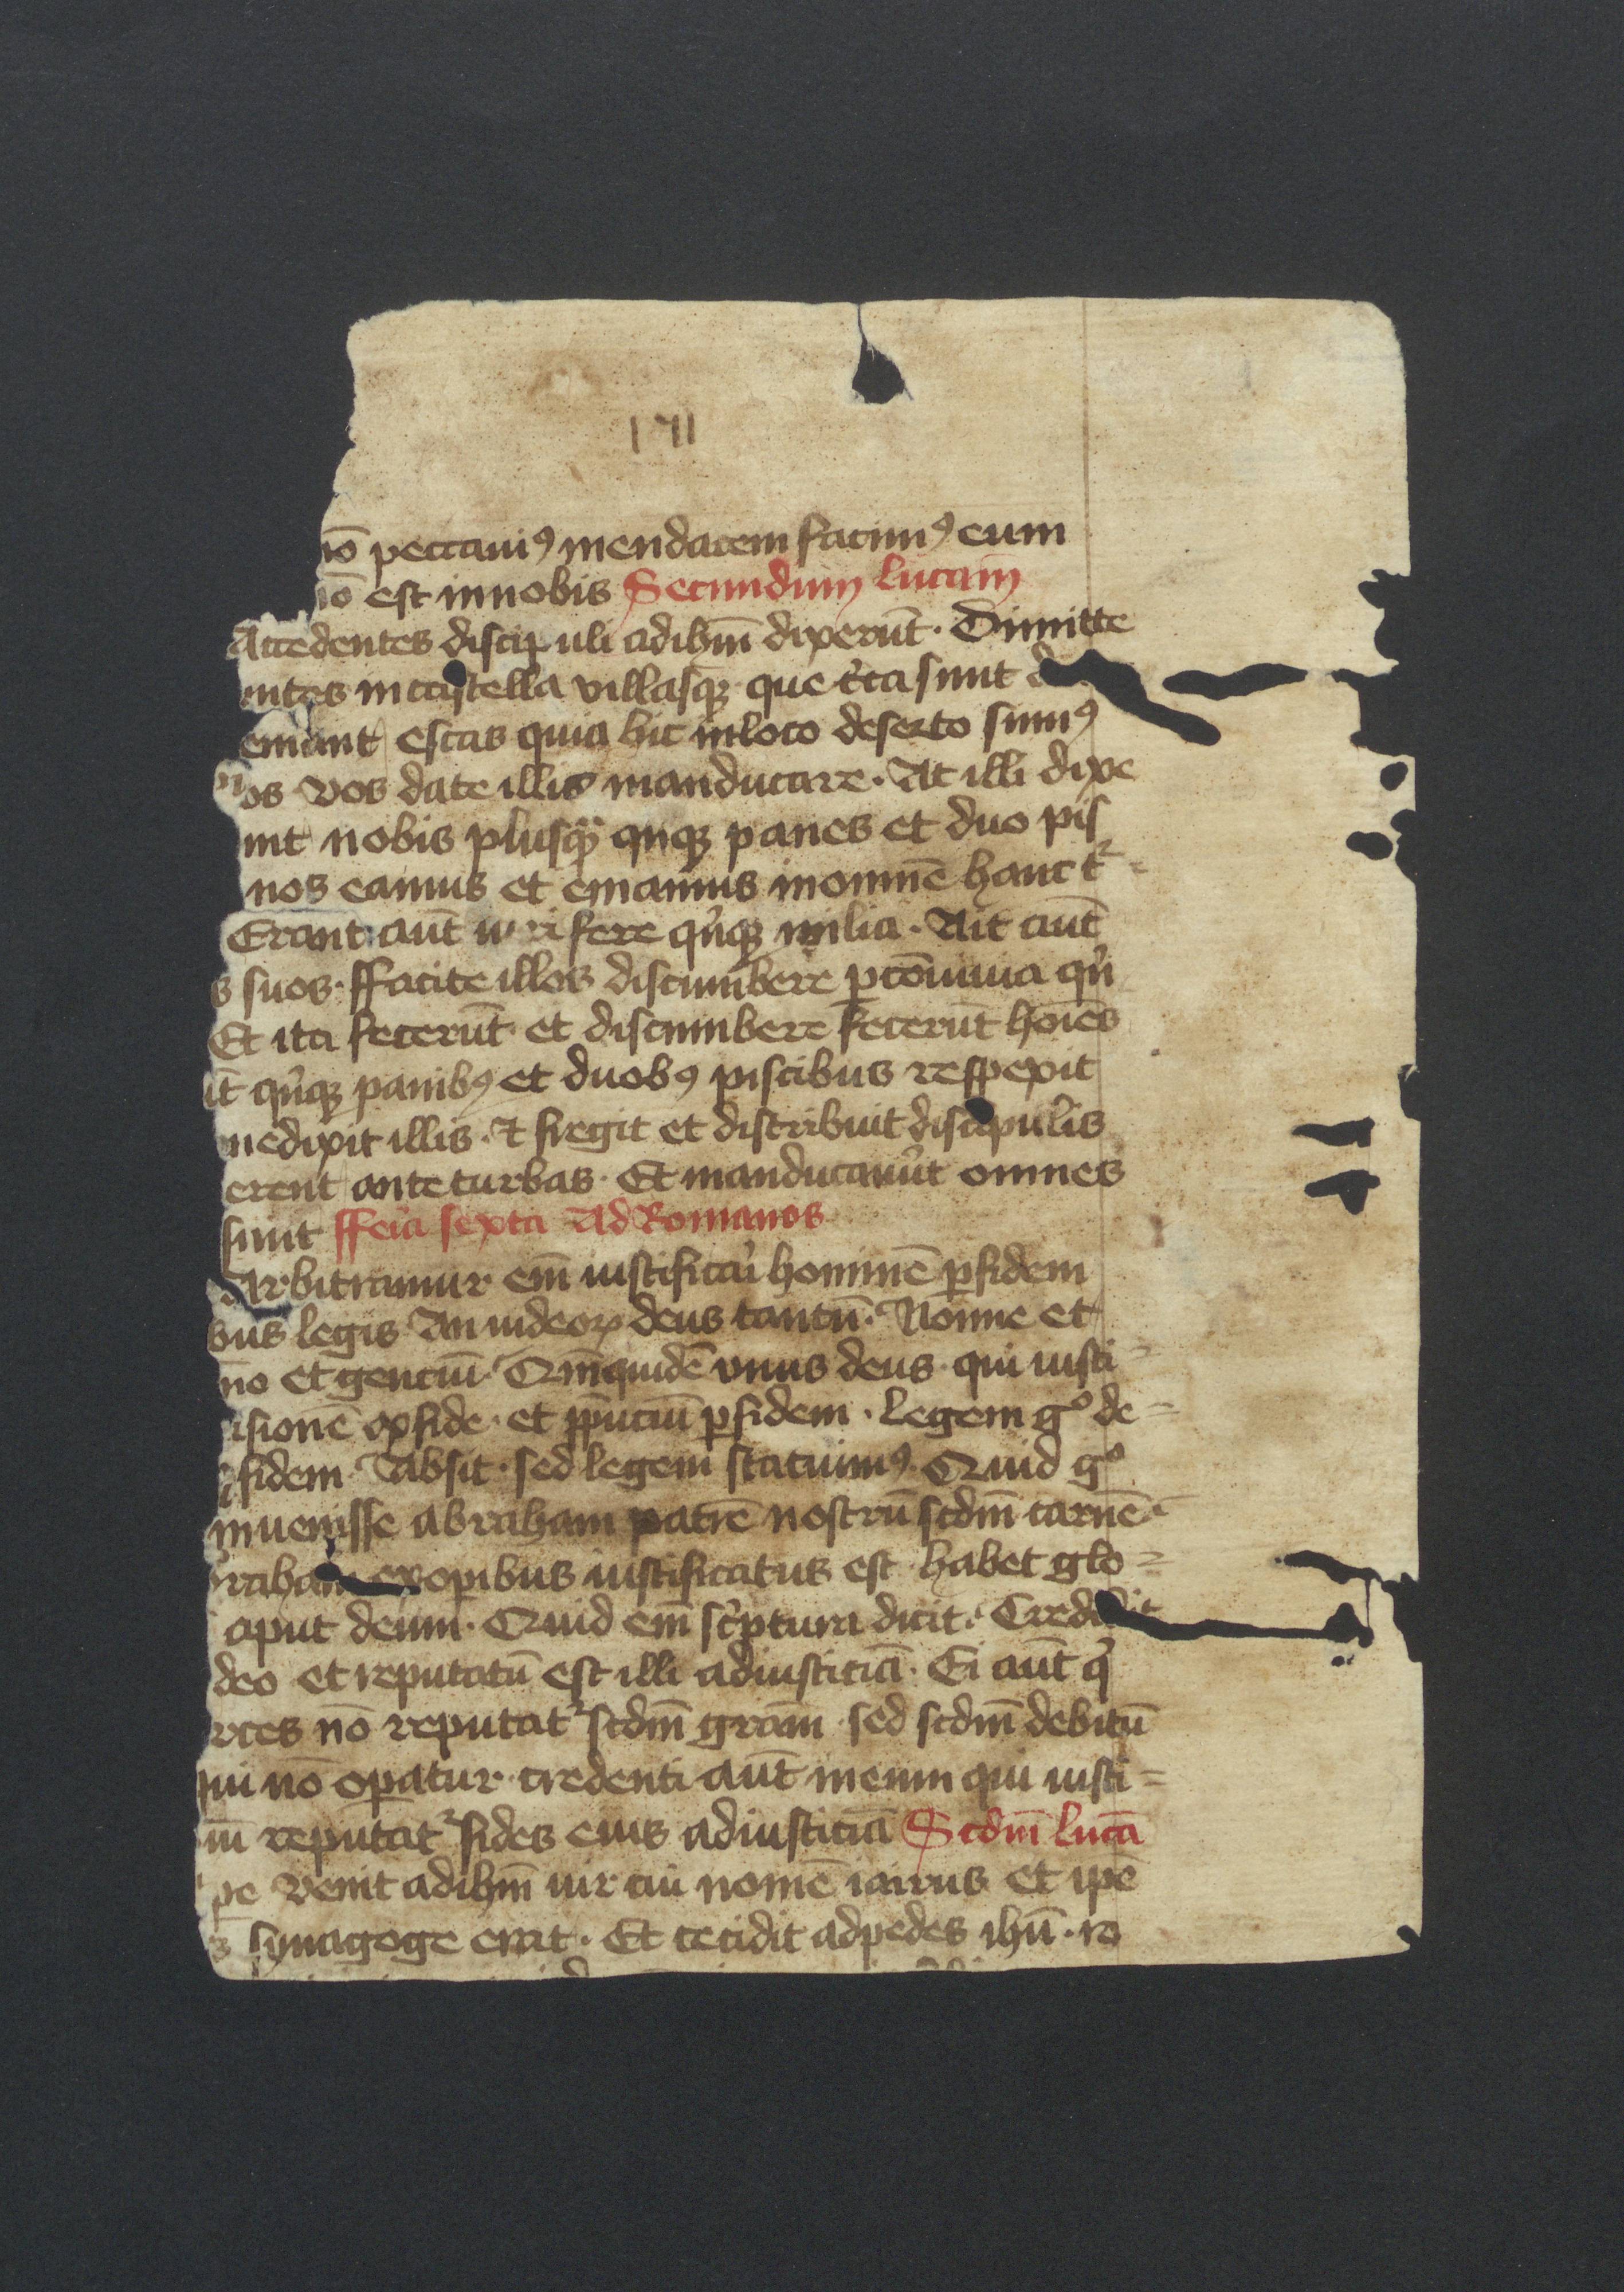 nō peccauiꝯ mendacem facimꝯ eum
nō est innobis Secundum lucam
Accedentes discipuli adihm̄ dixerūt · Dimitte
ntes incastella villasqꝫ que c̉ca sunt
emant escas quia hic inloco deserto sumꝯ
os Vos date illis manducare · At illi dixe
int nobis plusqꝫ qnqꝫ panes et duo pis
nos eamus et emamus inomnē hanc t᷑ =
Erant aūt uiri fere qnqꝫ milia · Ait aūt
s suos · ffacite illos discumbere ꝑcōuiuia qn̉
Et ita fecerūt · et discumbere fecerūt hoīes
it qnqꝫ panibꝯ et duobꝯ piscibus respexit
nedixit illis · ⁊ fregit et distribuit discipulis
erent ante turbas · Et manducauūt omnes
sunt ffeīa sexta Ad Romanos
Arbitramur em̄ iustificaī hominē ꝑfidem
bus legis An iudeoꝝ deus tantū · Nonne et
no et genciū · Qm̄quidē vnus deus · qui iusti =
isionē exfide · et p̄puciū ꝑfidem · Legem gº de =
fidem · Absit · sed legem statuimꝯ · Quid gº
inuenisse abraham patrē nostrū scdm̄ carnē ·
raham exoꝑibus iustificatus est habet glo =
aput deum · Quid em̄ sc̉ptura dicit · Credidit
deo et reputatū est illi adiusticiā · Ei aūt q̉
rces nō reputat᷑ scdm̄ grām · sed scdm̄ debitū
ui nō oꝑatur · credenti aūt ineum qui iusti =
m̄ reputat᷑ fides eius adiusticiā Scdm̄ lucā
pe Venit adihm̄ uir cui nomē iairus et ipē
s synagoge erat · Et cecidit adpedes ihū · ro